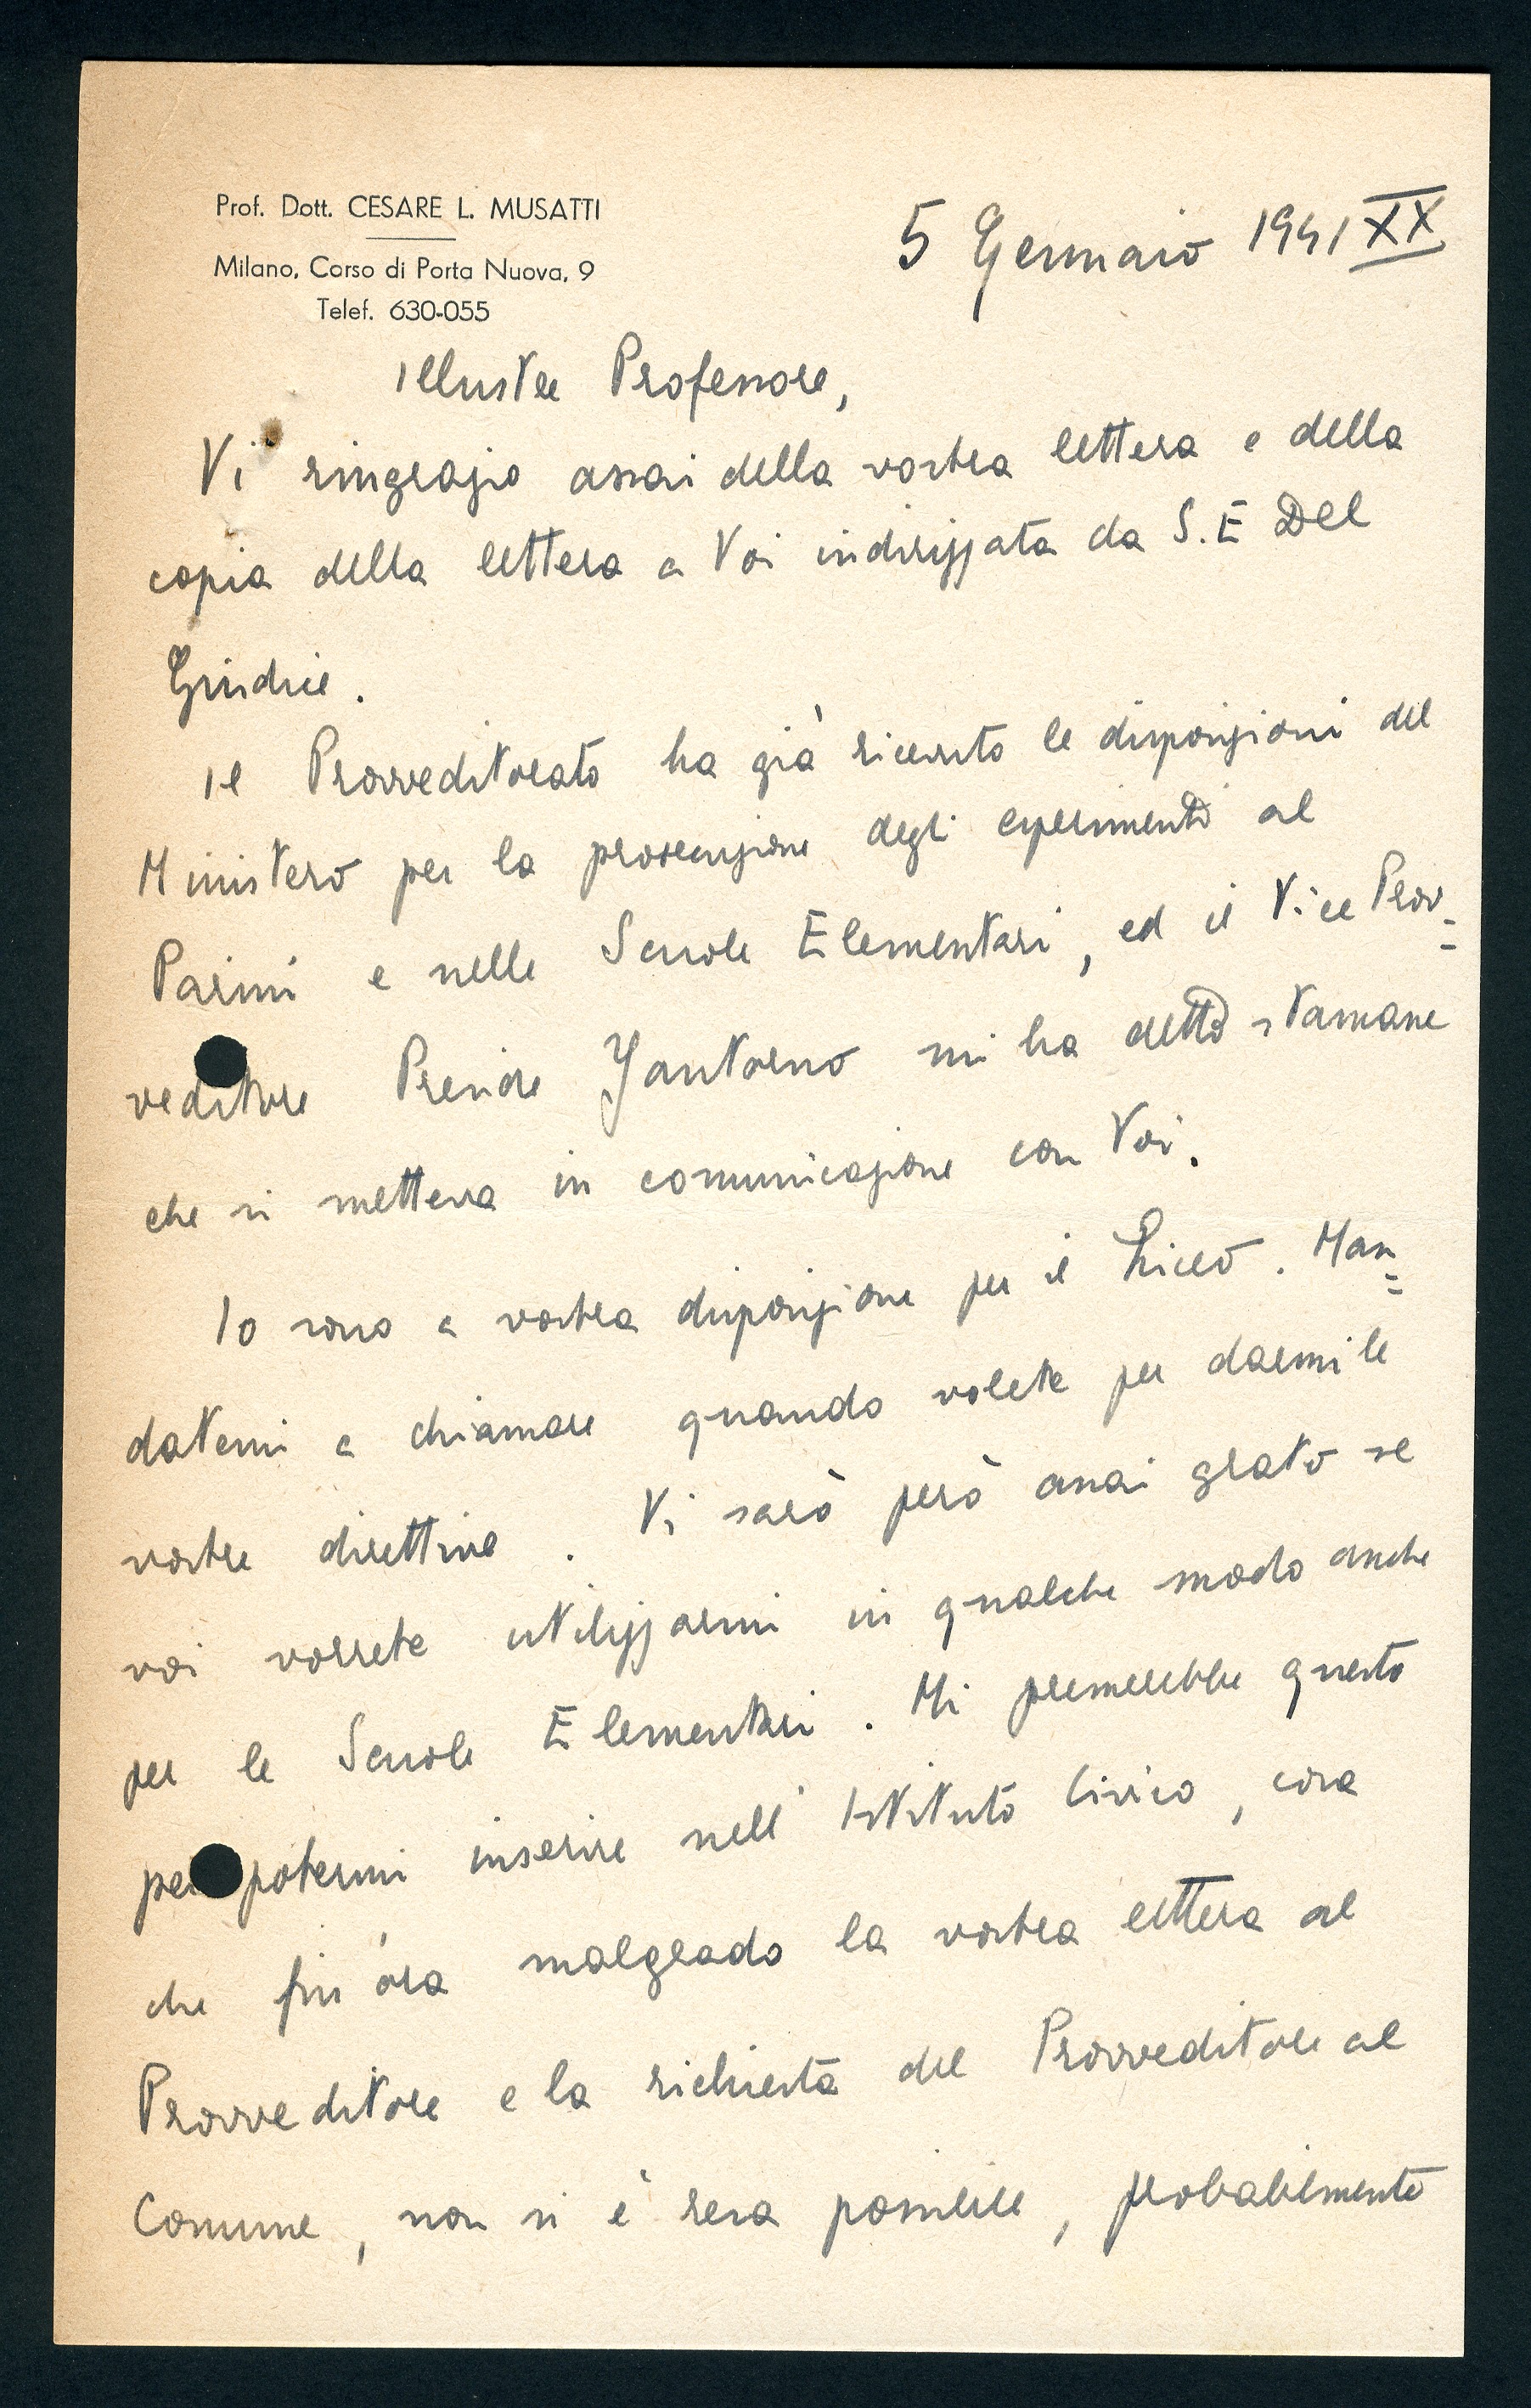 Prof. Dott. CESARE L. MUSATTI
Milano, Corso di Porta Nuova, 9
Telef. 630-055
5 Gennaio 1941 XX
Illustre Professore,
Vi ringrazio assai della vostra lettera e della
copia della lettera a Voi indirizzata da S.E Del
Giudice.
Il Provveditorato ha già ricevuto le disposizioni del
Ministero per la prosecuzione degli esperimenti al
Parini e nelle Scuole Elementari, ed il Vice Prov=
veditore Preside Jantorno mi ha detto stamane
che si metteva in comunicazione con Voi.
Io sono a vostra disposizione per il Liceo. Man=
datemi a chiamare quando volete per darmi le
vostre direttive. Vi sarò però assai grato se
voi vorrete utilizzarmi in qualche modo anche
per le Scuole Elementari. Mi premerebbe questo
per potermi inserire nell'Istituto Civico, cosa
che fin'ora malgrado la vostra lettera al
Provveditore e la richiesta del Provveditore al
Comune, non si è resa possibile, probabilmente